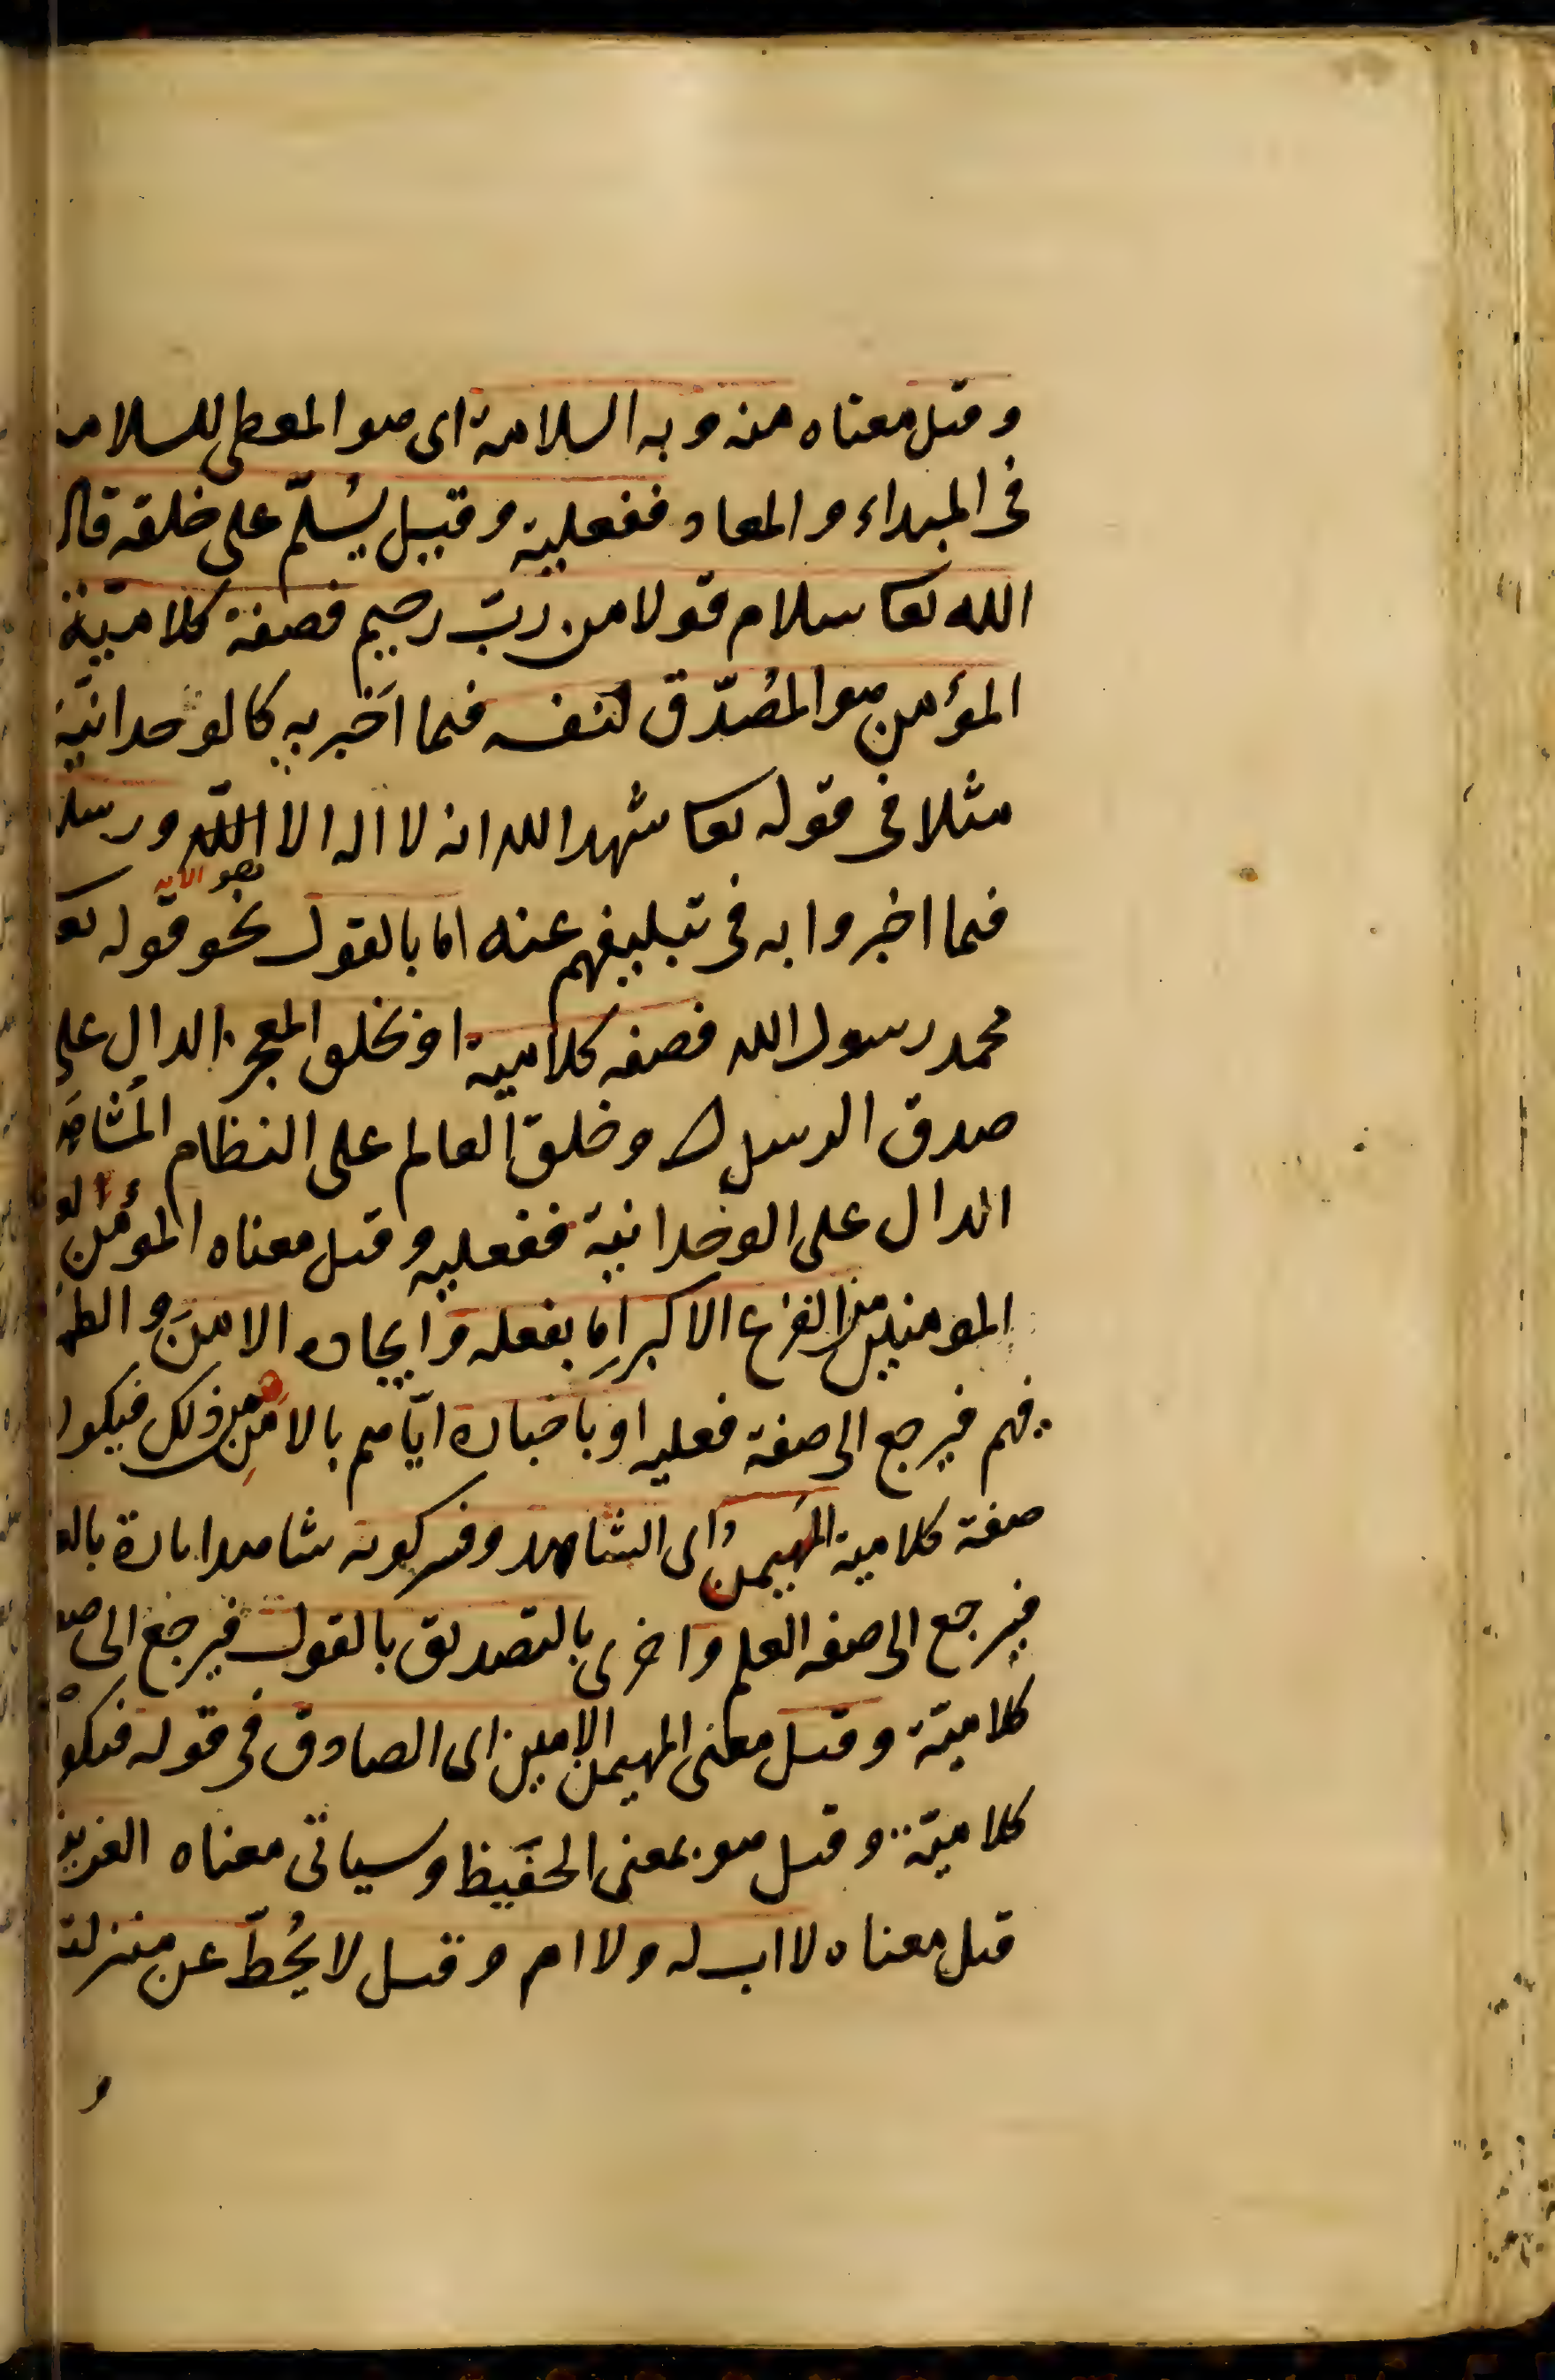 وقيل معناه منه وبه السلامة اى هو المعطى للسلامة
فى المبداء والمعاد ففعلية وقيل يُسلّم على خلقه قال
الله تعا سلام قولا من ربّ رحيم فصفة كلاميّة
المؤمن هو المُصدّق لنفسه فيما اَخبر به كالوحدانيّة
مثلا فى قوله تعا شهد الله انه لا اله الا اللّه ورسله
هو الآية
فيما اخبروا به فى تبليغهم عنه اما بالقول نحو قوله تع
محمد رسول الله فصفه كلامية او بخلق المعجز الدال على
صدق الرسل وخلق العالم على النظام المُشاهَد
الدال على الوحدانية ففعليه وقيل معناه المؤمن لعباده
المومنين من الفزع الاكبر اِما بفعله وايجاده الامنَ والطم
فيهم فيرجع الى صفة فعليه او باخباره ايّاهم بالامنِ من ذلك فيكون
صفة كلامية المُهيمن اى الشاهد وفسر كونه شاهدا تارة بالعلم
فيرجع الى صفه العلم واخرى بالتصديق بالقول فيرجع الى صفة
كلاميّة وقيل معنى المهيمن الامين اى الصادق فى قوله فيكون
كلاميّة وقيل هو بمعنى الحفَيظ وسياتى معناه العزيز
قيل معناه لا اب له ولا ام وقيل لا يُحطّ عن منزلته
و